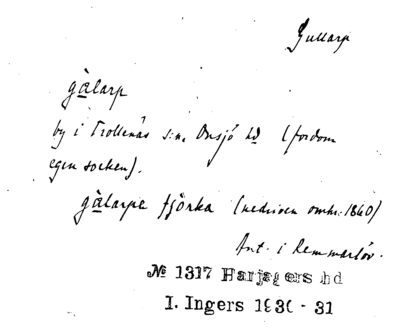 Gullarp
gàlarp
by i Trollenäs sn, Onsjö hd (fordom
egen socken).
gàlarpa tjörka (nedriven omkr. 1860)
Ant. i Remmarlöv.
№ 1317 Harjagers hd
I. Ingers 1930 - 31